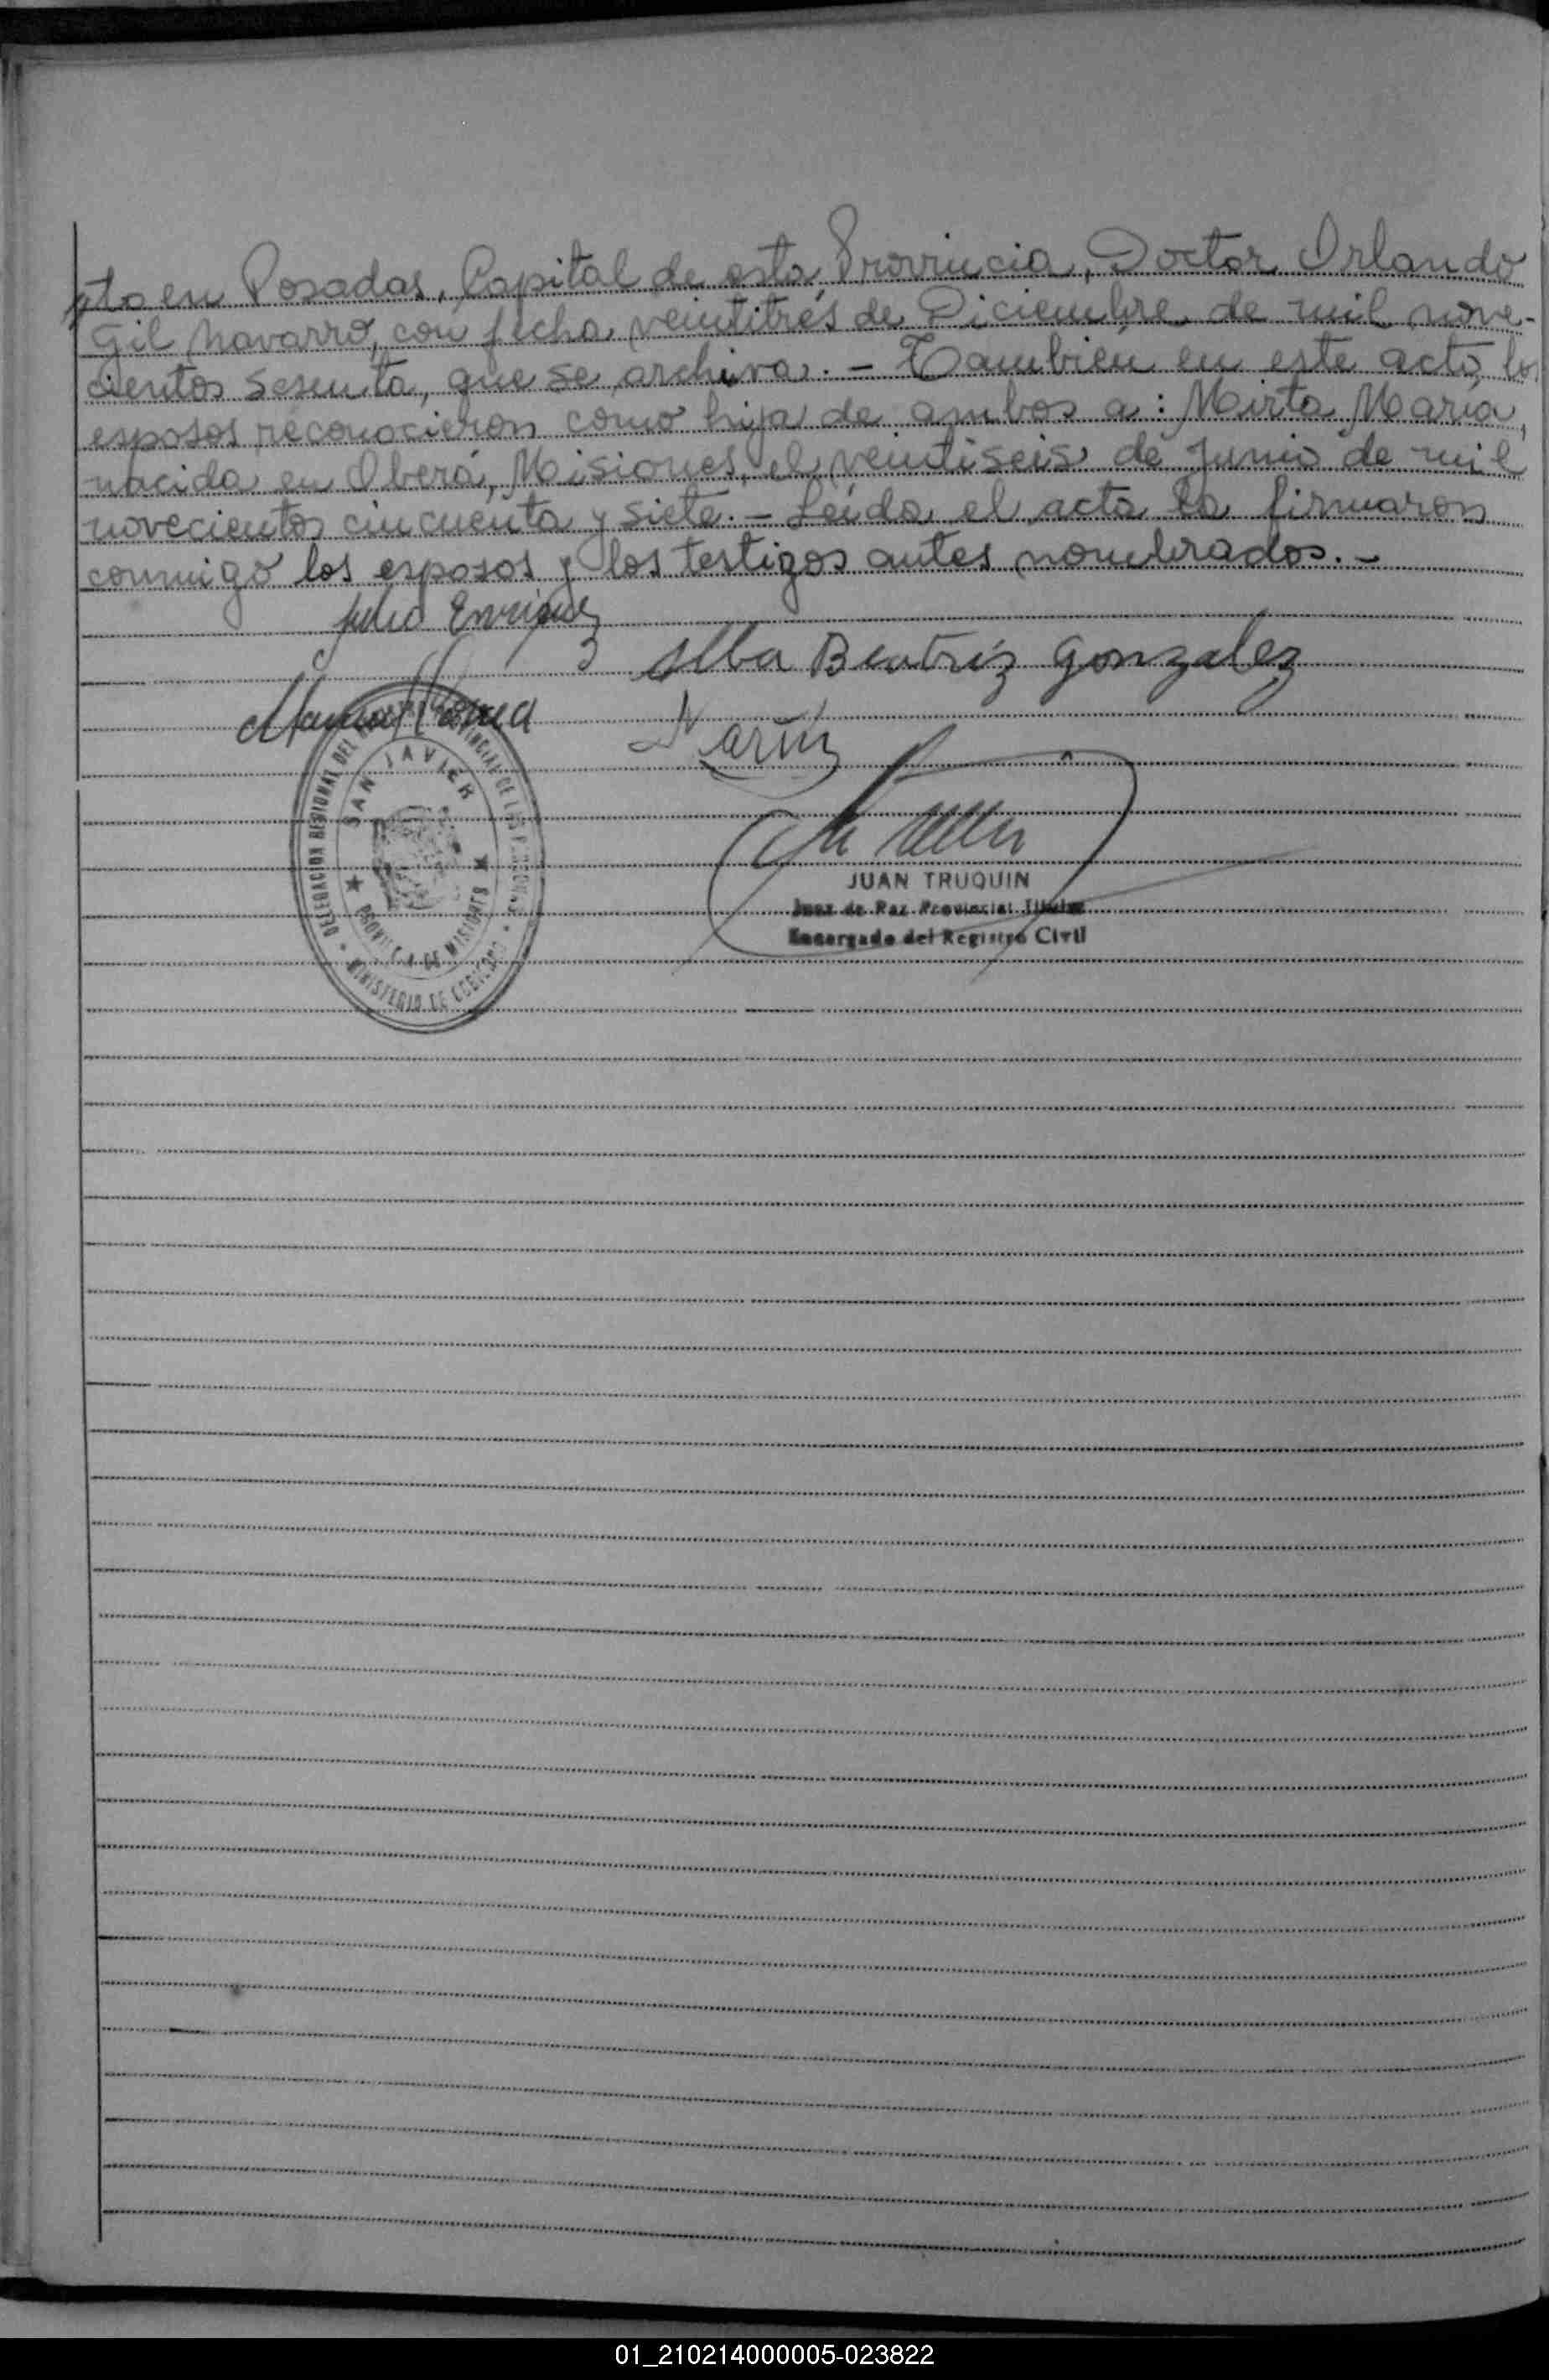 sto en Posadas, Capital de esta Provincia, Doctor Orlando
Gil Navarro, con fecha veintitrés de Diciembre de mil nove-
cientos sesenta, que se archiva. - También en este acto los
esposos reconocieron como hija de ambos a: Mirta María,
nacida en Oberá, Misiones, el veintiseis de Junio de mil
novecientos cincuenta y siete. - Leída el acta la firmaron
conmigo los esposos y los testigos antes nombrados. -
Julio Enriquez
Alba Beatriz Gonzalez
SAN JAVIER
DELEGACION REGIONAL DEL
PROVINCIA DE MISIONES
MINISTERIO DE GOBIERNO
JUAN TRUQUIN
Juez de Paz Provincial Titular
Encargado del Registro Civil
01_210214000005-023822